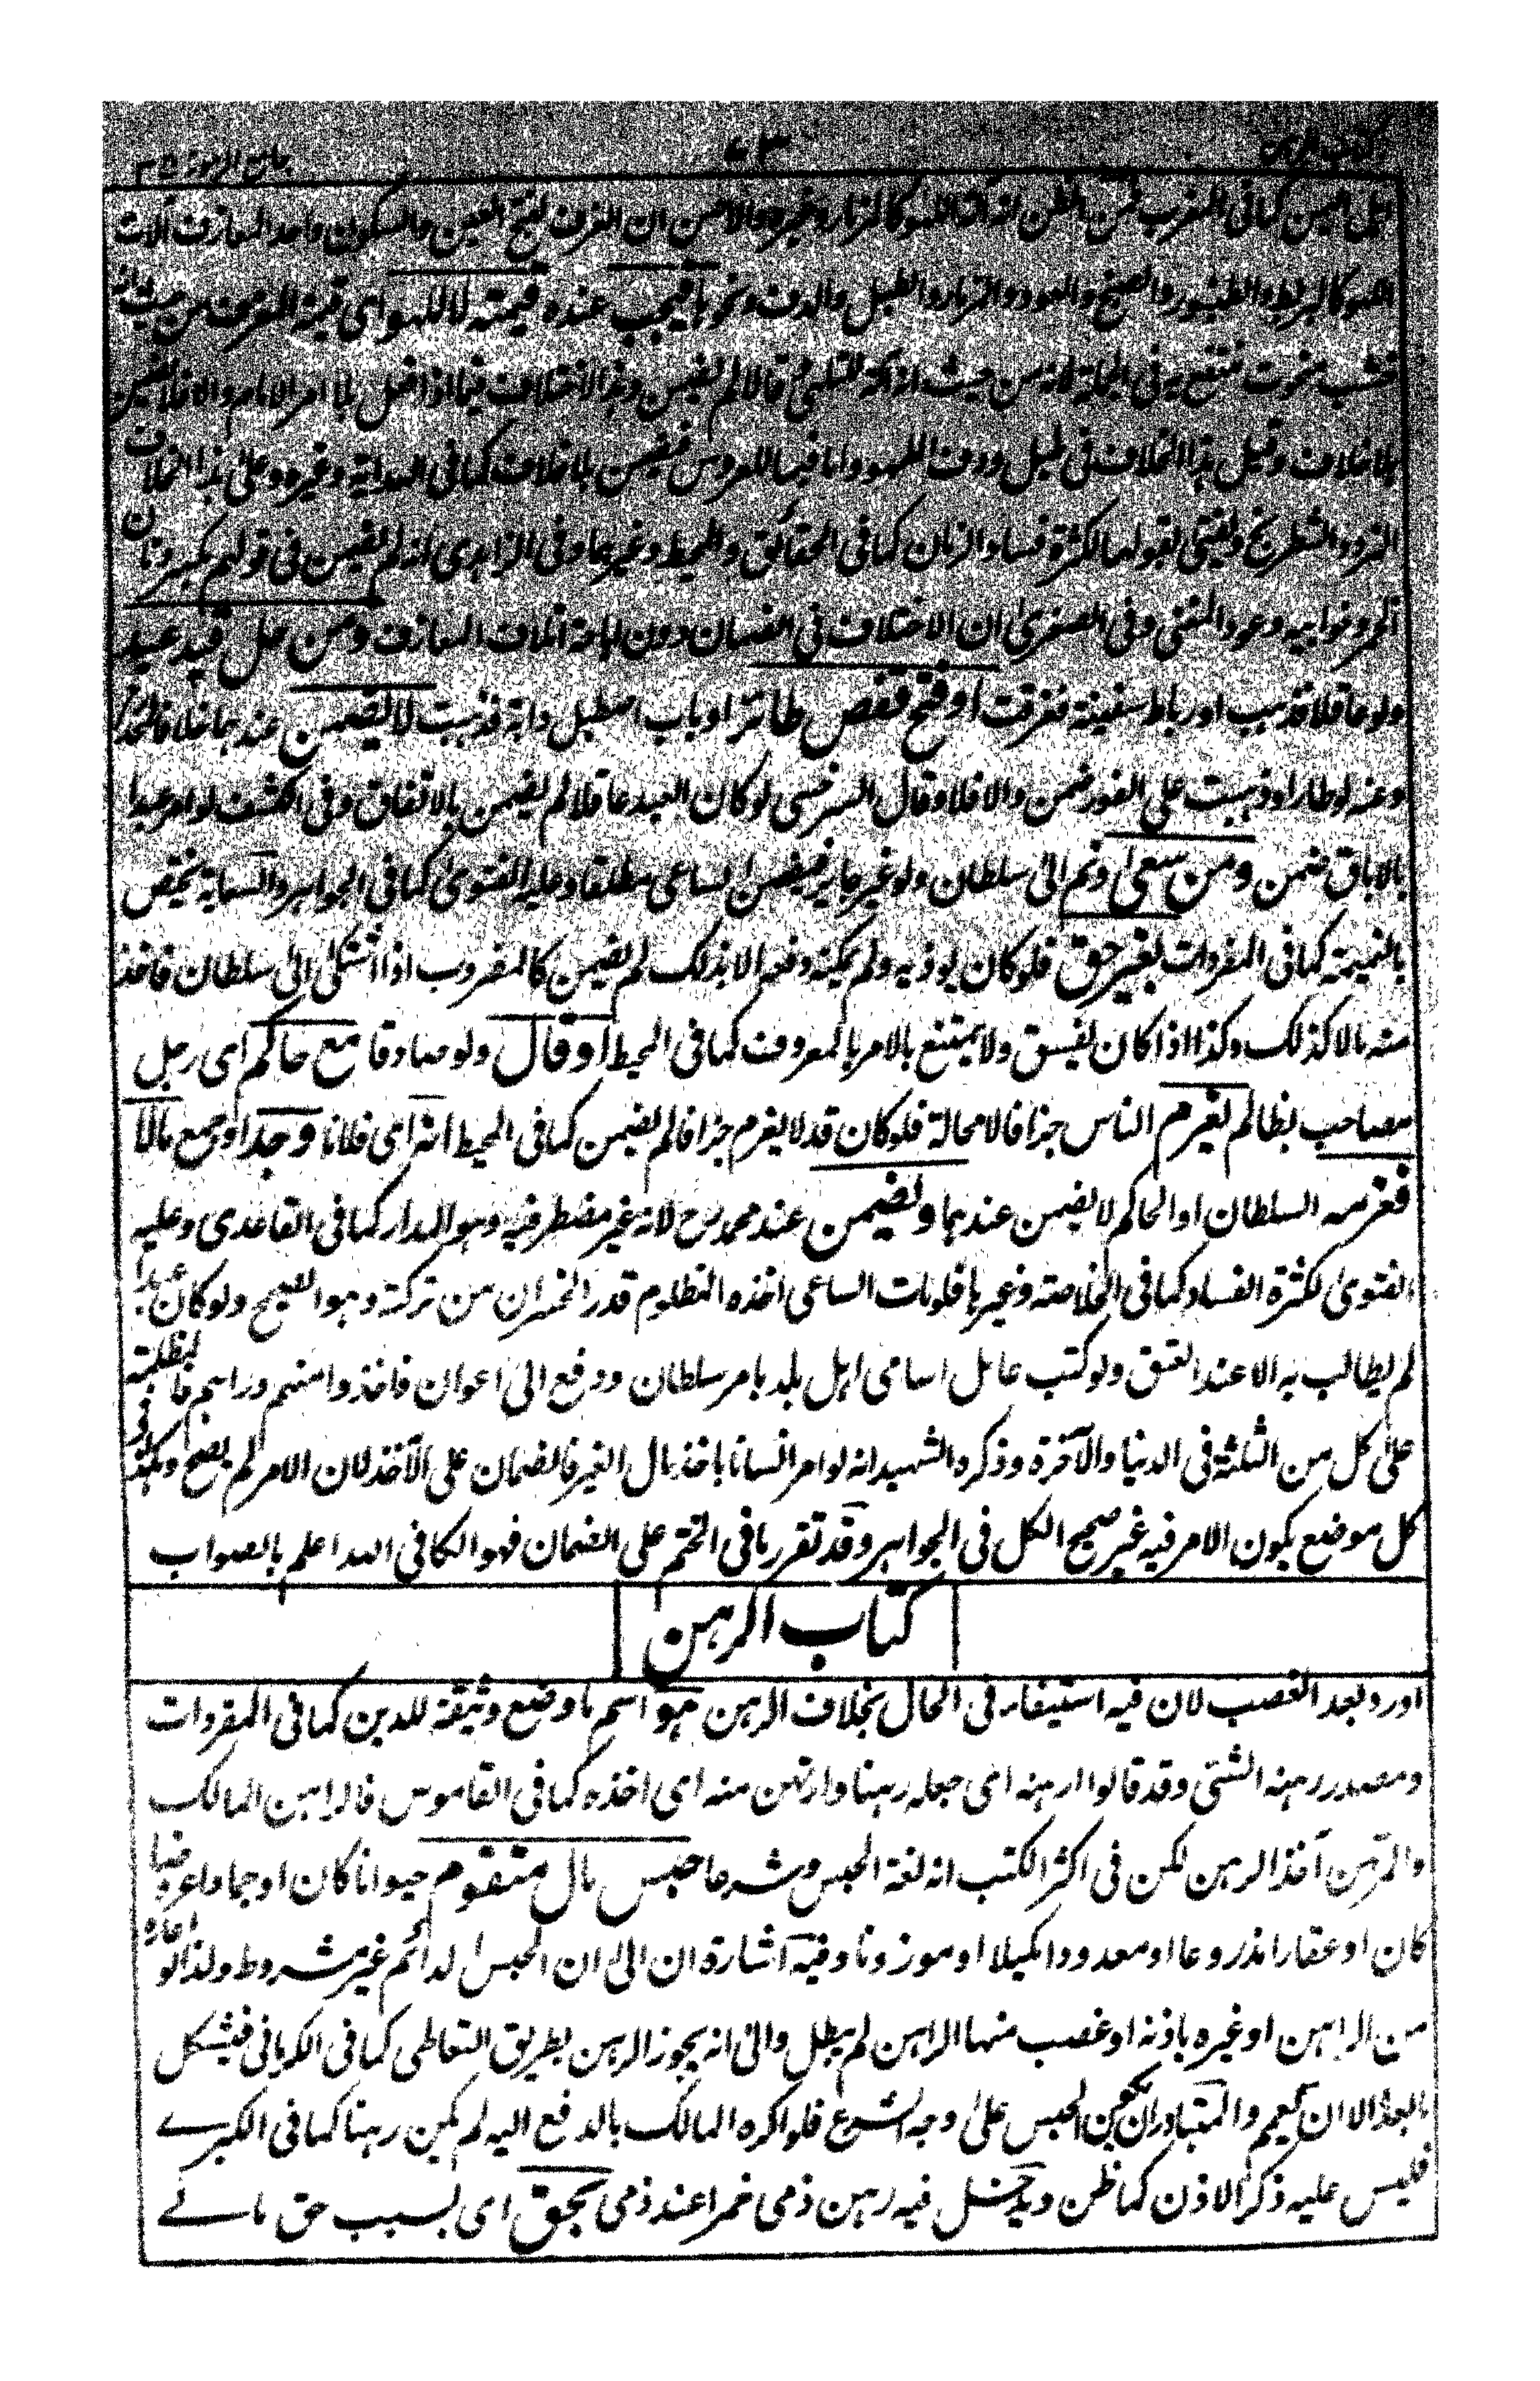 كتاب الرهن ٤٣ جامع الرموز
اهل اليمن كما فى المغرب فمن الظن انه آلة اللهو كالمزمار وغيره والاحسن ان العزف بفتح العين والسكون واحد المعازف آلات
اللهو كالبربط والطنبور والصنج والعود والمزمار والطبل والدف ونحوها فيجب عنده قيمته لا للهو اى قيمة المعزف من حيث انه
خشب منحوت منتفع به فى الجملة لا من حيث انه آلة للتلهى وقالا لم يضمن وهذا الاختلاف فيما اذا فعل بلا امر الامام والا فلا يضمن
بلا خلاف وقيل هذا الخلاف فى طبل ودف اللهو واما فيما للعروس فيضمن بلا خلاف كما فى الهداية وغيره وعلى هذا الخلاف
النرد والشطرنج ويفتى بقولهما لكثرة فساد الزمان كما فى الحقائق والمحيط وغيرهما وفى الزاهدى انه لم يضمن فى قولهم بكسر دنان
الخمر وخوابيه وعود المغنى وفى الصغرى ان الاختلاف فى الضمان دون اباحة اتلاف المعازف ومن حل قيد عبد
ولو عاقلا فذهب او رباط سفينة فغرقت او فتح قفص طائر او باب اصطبل دابة فذهبت لا يضمن عندهما خلافا لمحمد
وعنه لو طار او ذهبت على الفور ضمن والا فلا وقال السرخسى لو كان العبد عاقلا لم يضمن بالاتفاق وفى الكشف لو امر عبدا
بالاباق ضمن ومن سعى ونم الى سلطان ولو غير جابر فيضمن الساعى مطلقا وعليه الفتوى كما فى الجواهر والسعاية يختص
بالنميمة كما فى المفردات بغير حق فلو كان يوذيه ولم يمكنه دفعه الا بذلك لم يضمن كالمضروب اذا اشتكى الى سلطان فاخذ
منه مالا كذلك وكذا اذا كان يفسق ولا يمتنع بالامر بالمعروف كما فى المحيط او قال ولو صادقا مع حاكم اى رجل
مصاحب بظالم يغرم الناس جزافا لا محالة فلو كان قد لا يغرم جزافا لم يضمن كما فى المحيط انه اى فلانا وجد او جمع مالا
فغرمه السلطان او الحاكم لا يضمن عندهما ويضمن عند محمد رح لانه غير مضطر فيه وهو المدار كما فى القاعدى وعليه
الفتوى لكثرة الفساد كما فى الخلاصة وغيرها فلو مات الساعى اخذه المظلوم قدر الخسران من تركته وهو الصحيح ولو كان عبدا
لم يطالب به الا عند العتق ولو كتب عامل اسامى اهل بلد بامر سلطان ودفع الى اعوان فاخذوا منهم دراهم فالمظلمة
على كل من الثلثة فى الدنيا والآخرة وذكره الشهيد انه لو امر انسانا باخذ مال الغير فالضمان على الآخذ لان الامر لم يصح وهكذا فى
كل موضع يكون الامر فيه غير صحيح الكل فى الجواهر وقد تقرر ما فى الختم على الضمان فهو الكافى الله اعلم بالصواب
كتاب الرهن
اورد بعد الغصب لان فيه استيفاء فى الحال بخلاف الرهن هو اسم ما وضع وثيقة للدين كما فى المفردات
ومصدر رهنه الشئ وقد قالوا ارهنه اى جعله رهنا وارتهن منه اى اخذه كما فى القاموس فالراهن المالك
والمرتهن آخذ الرهن لكن فى اكثر الكتب انه لغة الحبس وشرعا حبس مال متقوم حيوانا كان او جمادا عروضا
كان او عقارا مذروعا او معدودا مكيلا او موزونا وفيه اشارة ان الى ان الحبس الدائم غير مشروط ولذا لو اعاره
من الراهن او غيره باذنه او غصب منها الراهن لم يبطل والى انه يجوز الرهن بطريق التعاطى كما فى الكرمانى فيشكل
بالعذر الا ان يعمم والمتبادر ان يكون الحبس على وجه الشرع فلو اكره المالك بالدفع اليه لم يكن رهنا كما فى الكبرے
فليس عليه ذكر الاذن كما ظن ويدخل فيه رهن ذمى خمرا عند ذمى بحق اى بسبب حق مالے